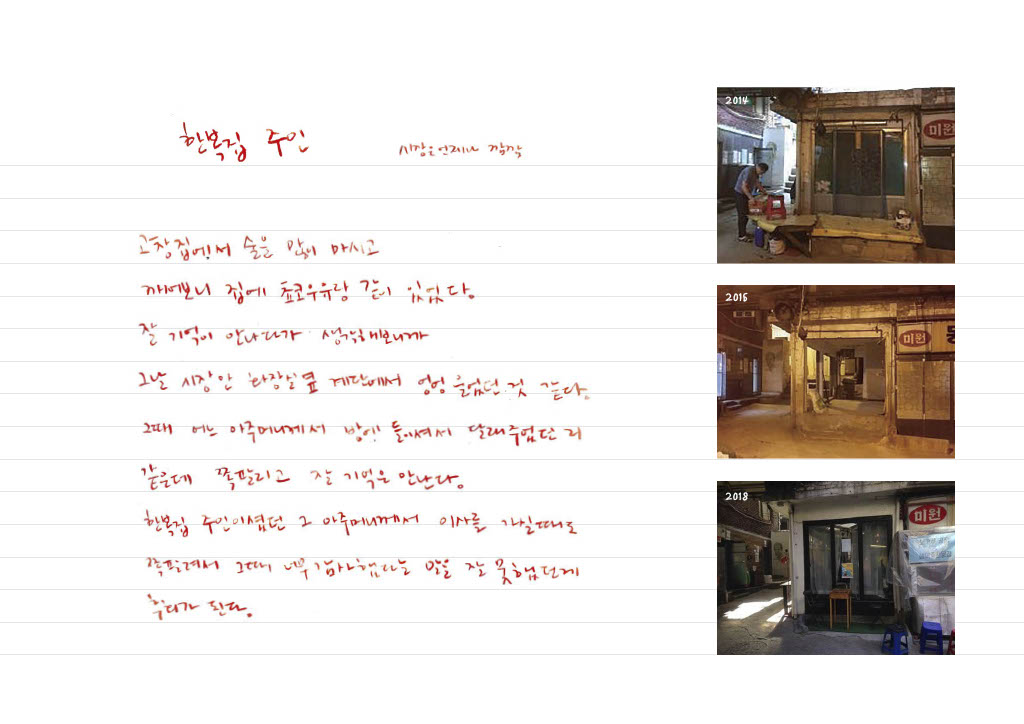 한복집 주인
시장은 언제나 깜깜
고창집에서 술을 많이 마시고
깨어보니 집에 쵸코우유랑 같이 있었다.
잘 기억이 안나다가 생각해보니까
그날 시장안 화장실옆 계단에서 엉엉 울었던 것 같다.
그때 어느 아주머니께서 방에 들이셔서 달래주었던 거
같은데 쪽팔리고 잘 기억은 안난다.
한복집 주인이셨던 그 아주머니께서 이사를 가실때도
쪽팔려서 그때 너무 감사했다는 말을 잘 못했던게
후회가 된다.
2014
미원
2015
미원
2018
미원